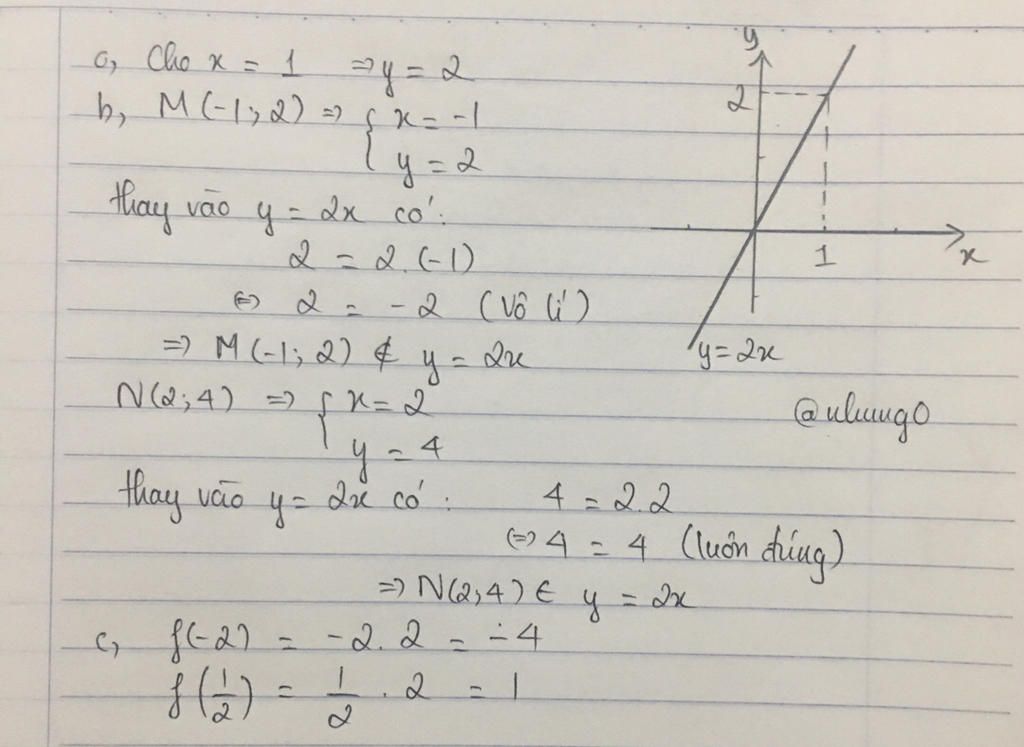 a, Cho x = 1 => y = 2
b, M(-1; 2) => { x = -1
y = 2
thay vào y = 2x có:
2 = 2.(-1)
<=> 2 = -2 (Vô lí)
=> M(-1; 2) ∉ y = 2x
N(2; 4) => { x = 2
y = 4
thay vào y = 2x có: 4 = 2.2
<=> 4 = 4 (luôn đúng)
=> N(2; 4) ∈ y = 2x
c, f(-2) = -2. 2 = -4
f(1/2) = 1/2 . 2 = 1
y
2
1
x
y = 2x